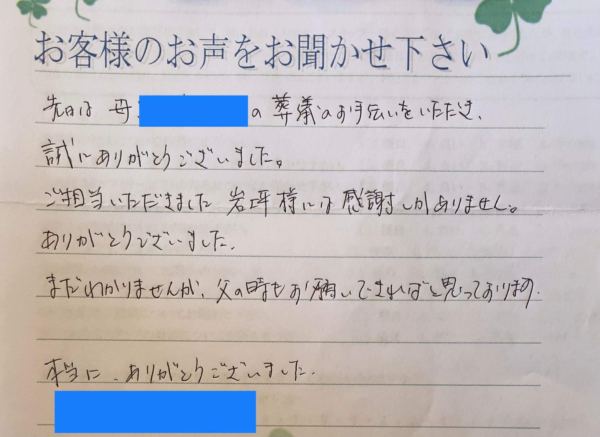 お客様のお声をお聞かせ下さい
先日は 母 の 葬儀のお手伝いをいただき、
誠にありがとうございました。
ご担当いただきました 岩坪様には 感謝しかありません。
ありがとうございました。
まだわかりませんが、父の時もお願いできればと思っております。
本当に、ありがとうございました。